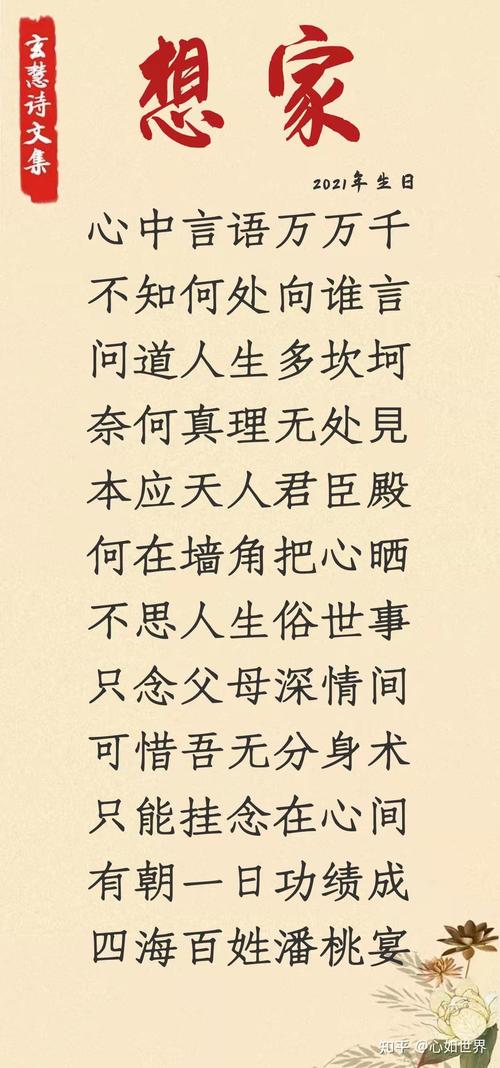 玄慧诗文集
想家
2021年生日
心中言语万万千
不知何处向谁言
问道人生多坎坷
奈何真理无处見
本应天人君臣殿
何在墙角把心晒
不思人生俗世事
只念父母深情间
可惜吾无分身术
只能挂念在心间
有朝一日功绩成
四海百姓潘桃宴
知乎 @心如世界